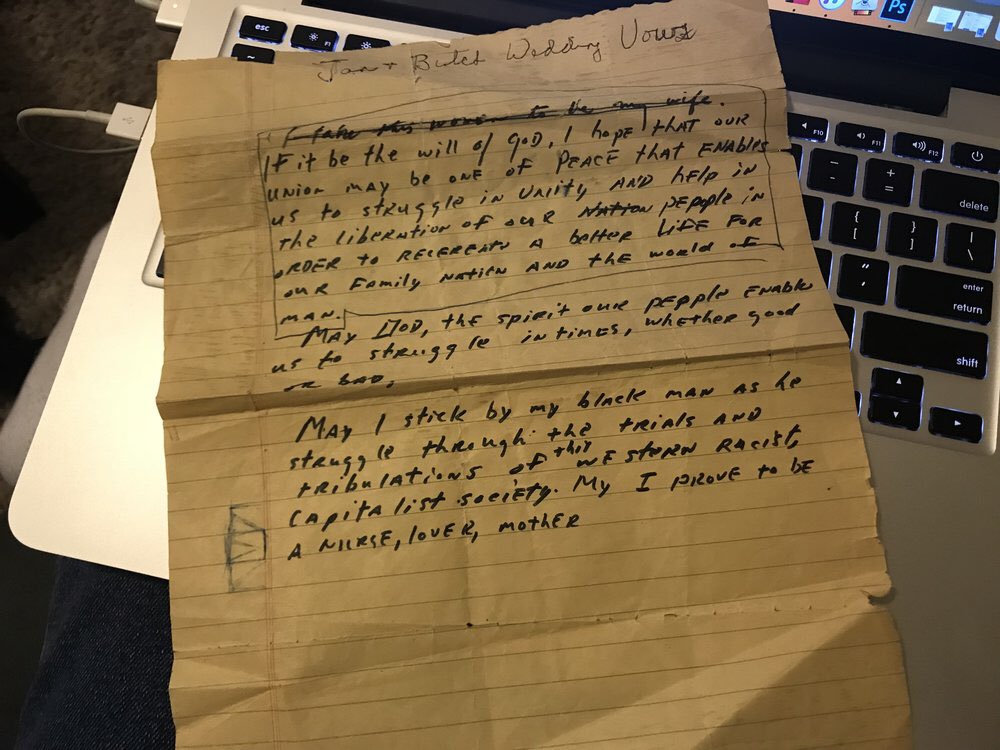 Jan + Butch Wedding Vows
I take this woman to be my wife.
If it be the will of GOD, I hope that our
union may be one of PEACE that ENABLES
us to struggle in Unity AND help in
the liberation of our NATION pepople in
ORDER to RECEREATE A better LIFE FOR
our Family NATION AND the world of
MAN.
MAY GOD, the spirit our people ENABLE
us to struggle in times, whether good
or BAD,
MAY I stick by my black man as he
struggle through the trials AND
tribulations of this WESTERN RACIST,
capitalist society. My I prove to be
A NURSE, lover, mother
esc
F1
~
F10
F11
F12
Ps
–
-
+
=
delete
{
[
}
]
|
\
"
'
enter
return
shift